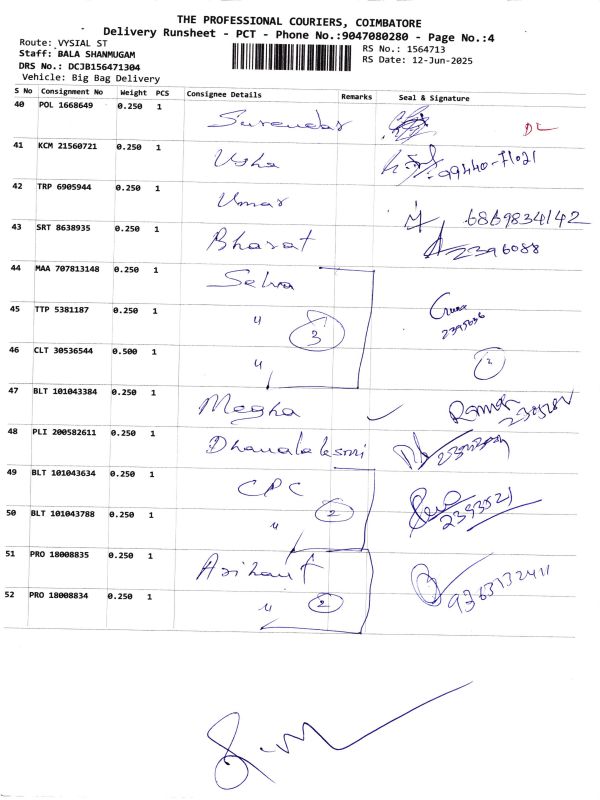 THE PROFESSIONAL COURIERS, COIMBATORE
Delivery Runsheet - PCT - Phone No.:9047080280 - Page No.:4
Route: VYSIAL ST
Staff: BALA SHANMUGAM
DRS No.: DCJB156471304
Vehicle: Big Bag Delivery
RS No.: 1564713
RS Date: 12-Jun-2025
S No Consignment No Weight PCS Consignee Details Remarks Seal & Signature
40 POL 1668649 0.250 1 Surendar
41 KCM 21560721 0.250 1 Usha 99440-71021
42 TRP 6905944 0.250 1 Umar 6869834142
43 SRT 8638935 0.250 1 Bharat 2396088
44 MAA 707813148 0.250 1 Selva
45 TTP 5381187 0.250 1 " 3
46 CLT 30536544 0.500 1 " 2
47 BLT 101043384 0.250 1 Megha Raman
48 PLI 200582611 0.250 1 Dhanalaksmi
49 BLT 101043634 0.250 1 CPC
50 BLT 101043788 0.250 1 " 2 2393521
51 PRO 18008835 0.250 1 Arihant
52 PRO 18008834 0.250 1 " 2